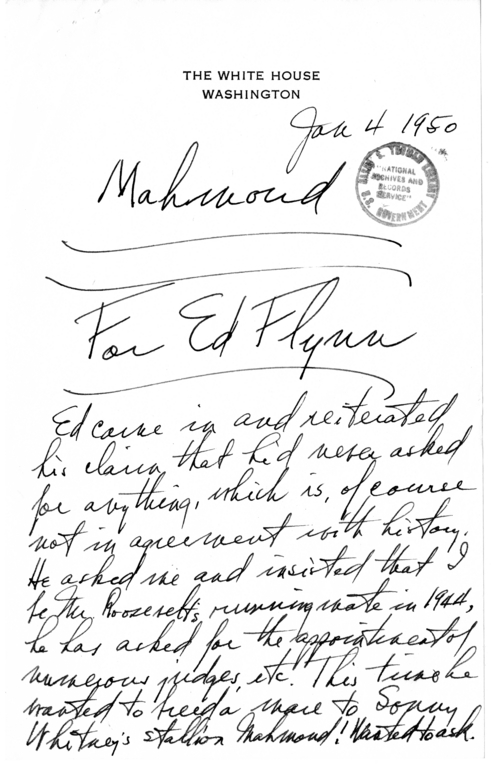 THE WHITE HOUSE
WASHINGTON
Jan 4 1950
HARRY S. TRUMAN LIBRARY
"NATIONAL
ARCHIVES AND
RECORDS
SERVICE"
U.S. GOVERNMENT
Mahmoud
For Ed Flynn
Ed came in and reiterated
his claim that he'd never asked
for anything, which is, of course
not in agreement with history.
He asked me and insisted that I
be Mr Roosevelt's running mate in 1944,
he has asked for the appointment of
numerous judges, etc. This time he
wanted to breed a mare to Sonny
Whitney's stallion Mahmoud! Wanted to ask.